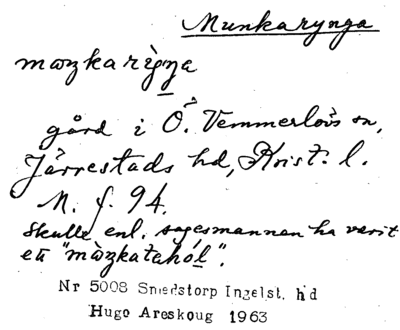 Munkarynga
mɷŋkarìŋa
gård i Ö. Vemmerlövs sn,
Järrestads hd, Krist. l.
M. f. 94.
Skulle, enl. sagesmannen ha varit
ett "mɷ̀ŋkatahól".
Nr 5008 Smedstorp Ingelst. hd
Hugo Areskoug 1963